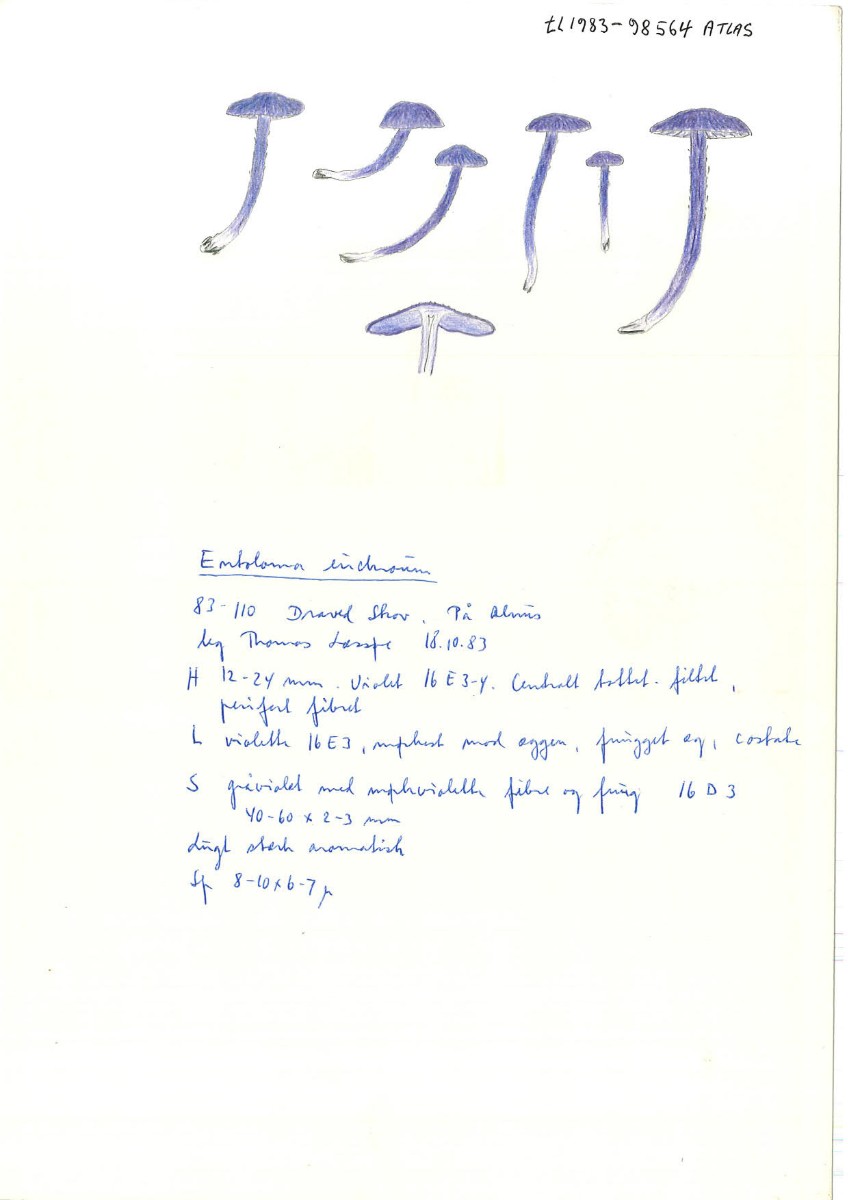 tL1983-98564 ATLAS
Entoloma euchroum
83-110 Draved Skov. På Alnus
leg Thomas Læssøe 18.10.83
H 12-24 mm. Violet 16 E 3-4. Centralt tottet-filtet,
perifert fibret
L violette 16 E 3, mørkest mod æggen, frugget æg, costate
S gråviolet med mørkviolette fibre og fnug 16 D 3
40-60 x 2-3 mm
Lugt stærk aromatisk
Sp 8-10 x 6-7 µ